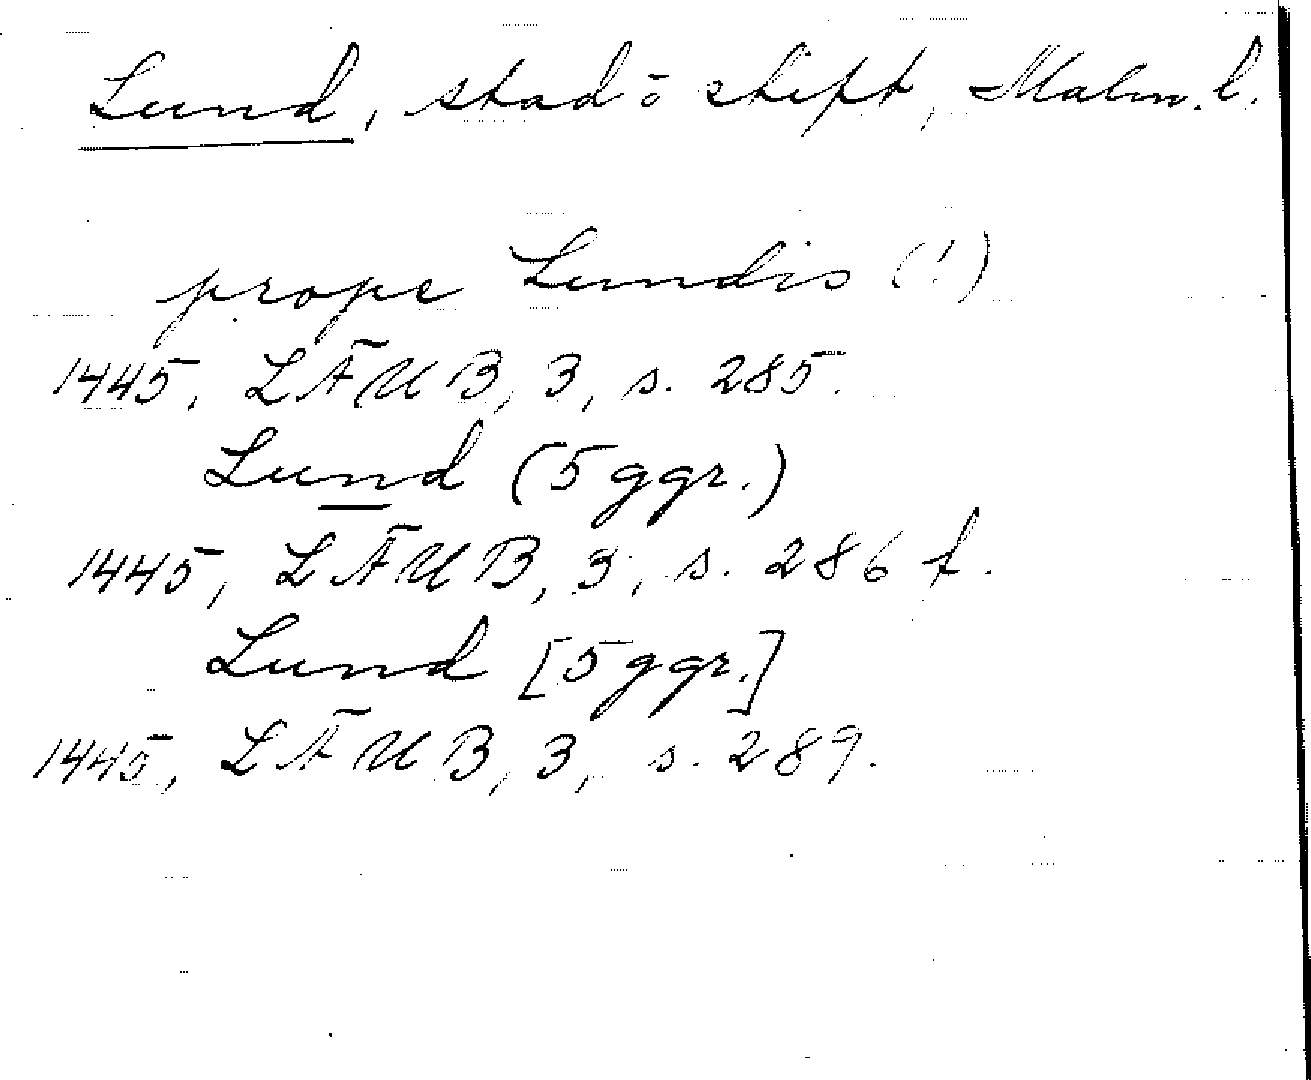 Lund, stad o stift, Malm. l.
prope Lundis (!)
1445, LÄUB, 3, s. 285.
Lund (5 ggr.)
1445, LÄUB, 3, s. 286 f.
Lund [5 ggr.]
1445, LÄUB, 3, s. 289.